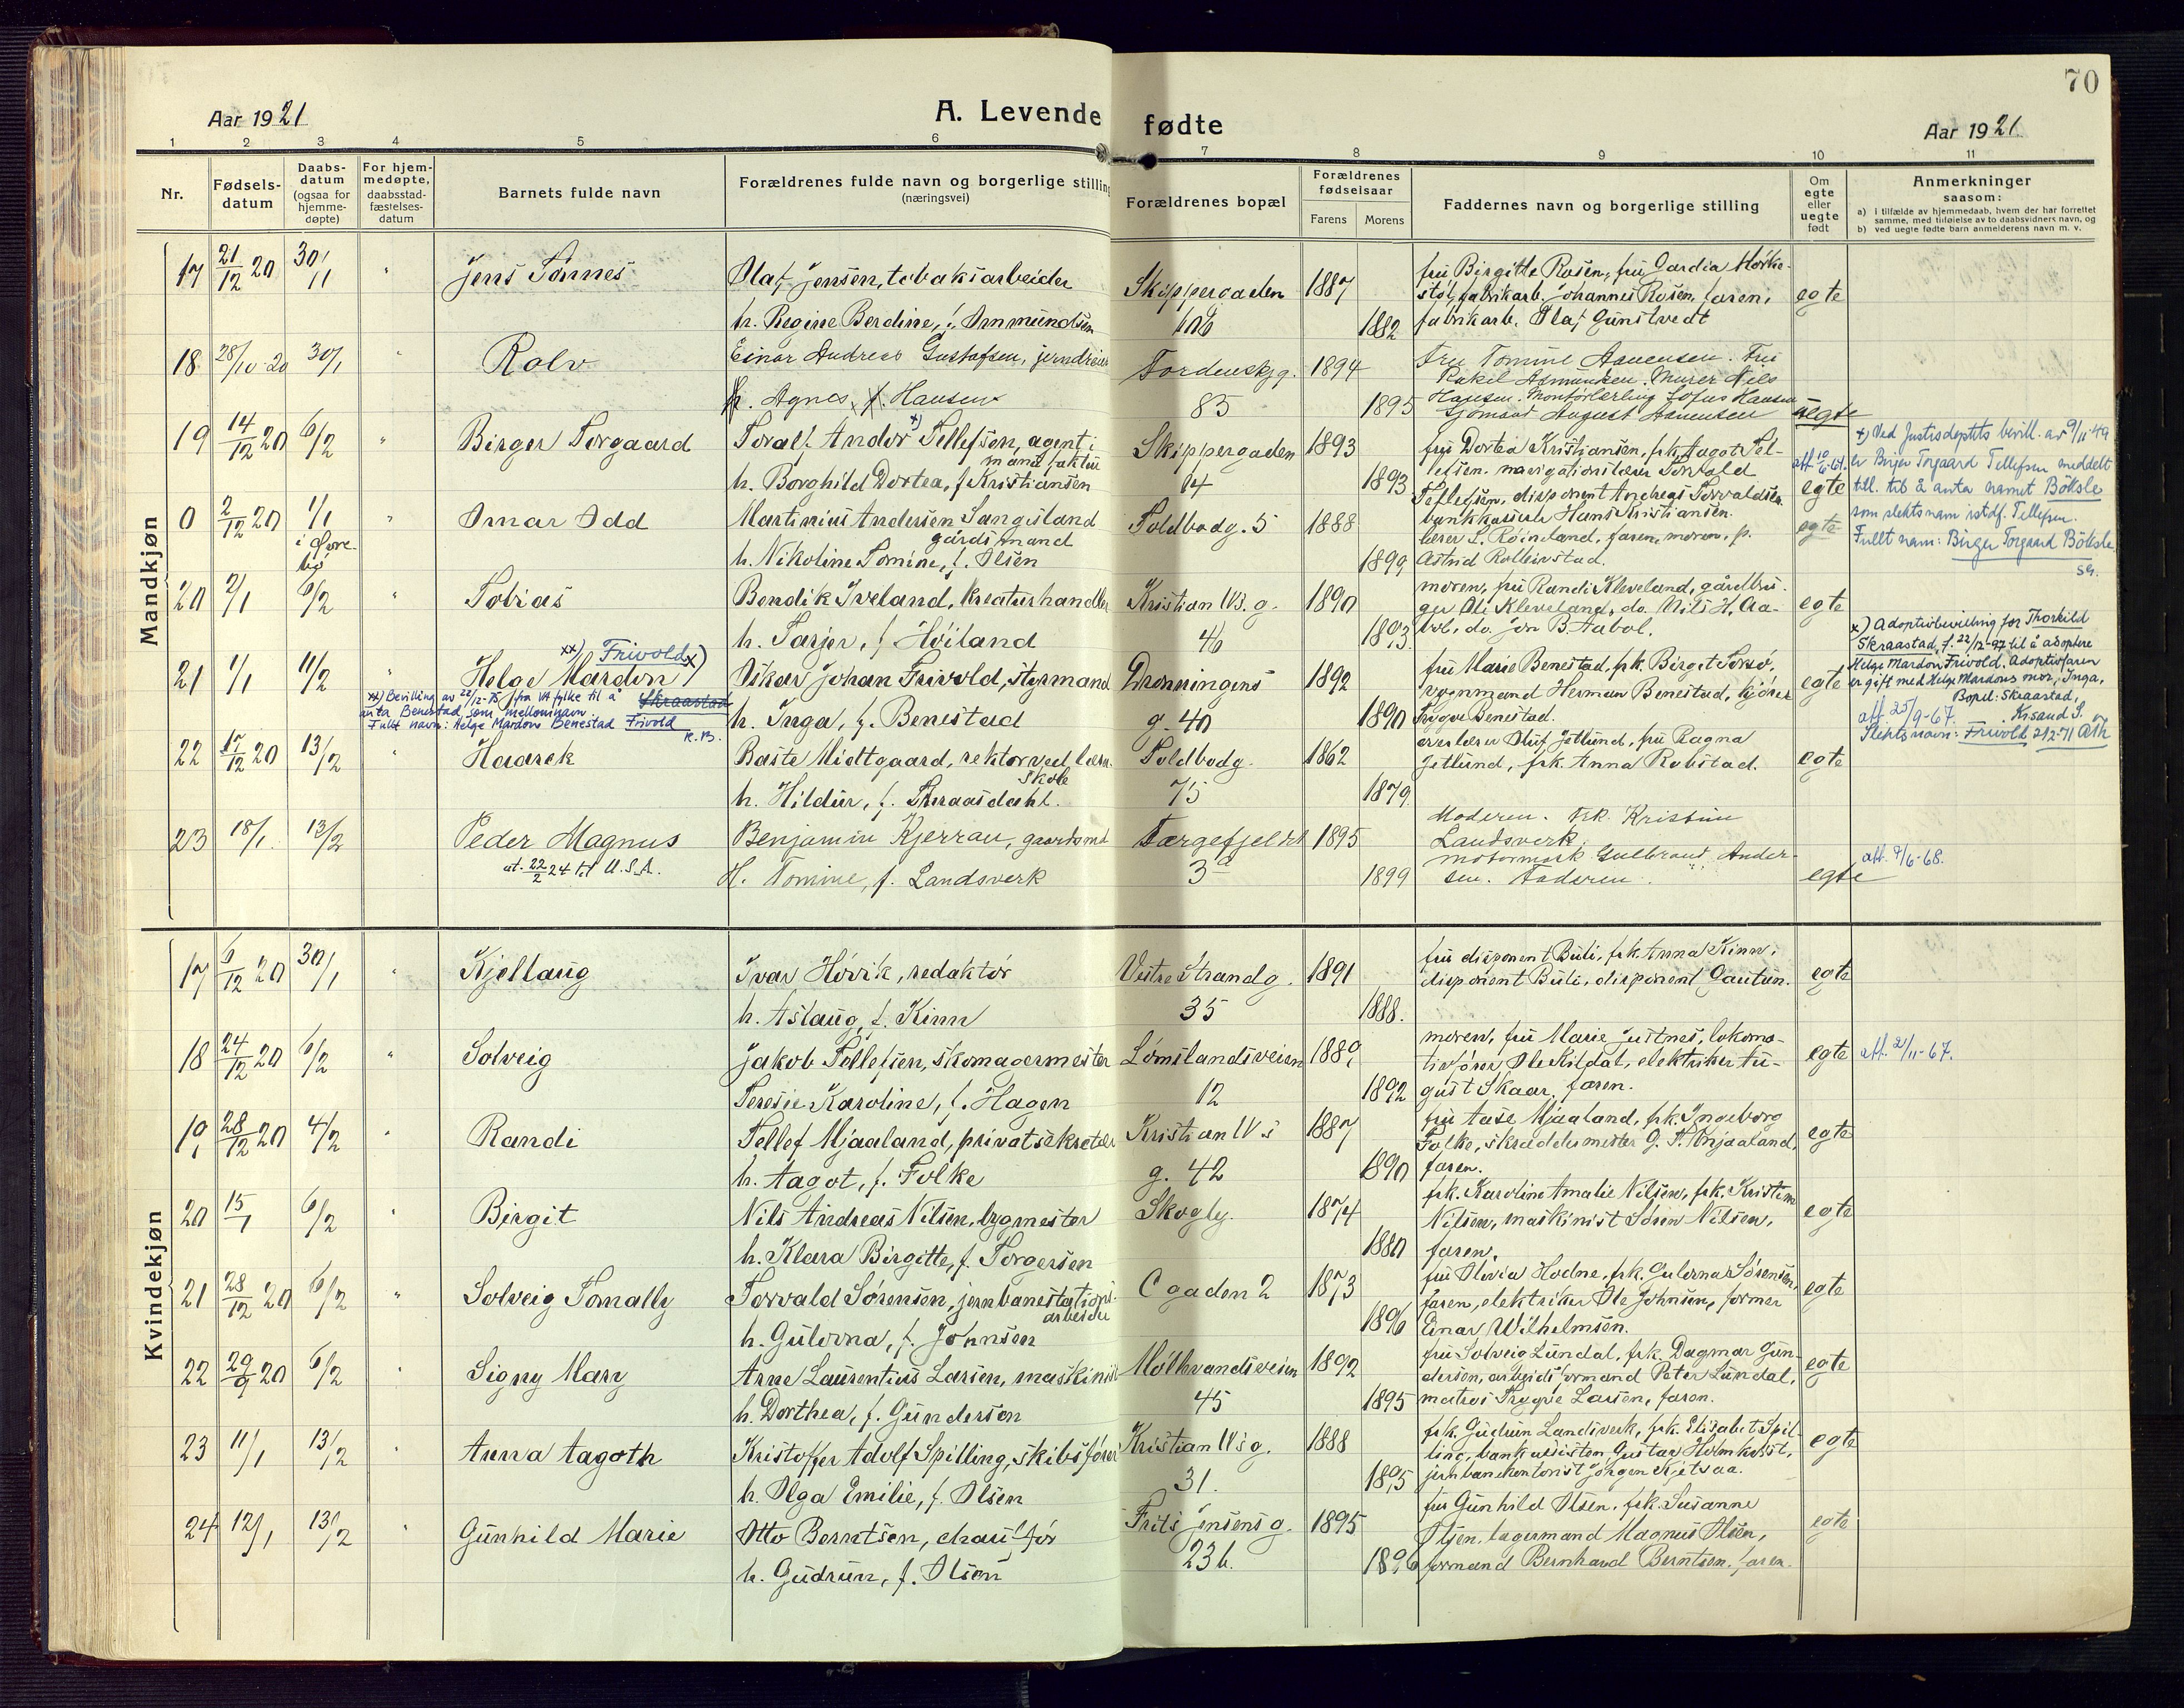 70
Aar 1921
A. Levende fødte
Aar 1921
1 2 3 4 5 6 7 8 9 10 11
Nr.
Fødsels-
datum
Daabs-
datum
(ogsaa for
hjemme-
døpte)
For hjem-
medøpte,
daabsstad-
fæstelses-
datum
Barnets fulde navn
Forældrenes fulde navn og borgerlige stilling
(næringsvei)
Forældrenes bopæl
Forældrenes
fødselsaar
Farens Morens
Faddernes navn og borgerlige stilling
Om
egte
eller
uegte
født
Anmerkninger
saasom:
a) I tilfælde av hjemmedaab, hvem der har forrettet
samme, med tilføielse av to daabsvidners navn, og
b) ved uegte fødte barn anmelderens navn m. v.
Mandkjøn
17 21/12 20 30/1 " Jens Tønnes
Olaf Jensen, tobaksarbeider
h. Regine Berdine, f. Anmundsen
Skippergaden
106
1887
1882
fru Birgitte Rosen, fru Gardia Hørke-
støl, fabrikarb. Johannes Rosen, faren,
fabrikarb. Olaf Gunstvedt
egte
18 28/10 20 30/1 " Rolv
Einar Andreas Gustafsen, jerndreier
h. Agnes, f. Hansen
Tordenskj.g.
85
1894
1895
Fru Tomine Aanensen. Fru
Rakel Asmundsen. Murer Nils
Hansen. Montørlærling Sofus Hansen
Sjømand August Aanensen
uegte
19 14/12 20 6/2 " Birger Torgaard
Toralf Andor x) Tellefsen, agent i
manufaktur
h. Borghild Dortea, f. Kristiansen
Skippergaden
14
1893
1893
fru Dortea Kristiansen, frk. Aagot Tel-
lefsen. navigationslærer Torvald
Tellefsen, disponent Andreas Torvaldsen
bankkasserer Hans Kristiansen.
att. 10/6-61.
egte
x) Ved Justisdeptets bevill. av 9/11 49
er Birger Torgaard Tellefsen meddelt
till. til å anta namet Bøksle
som slektsnam istdf. Tellefsen.
Fullt nam: Birger Torgaard Bøksle
SG.
0 2/12 20 1/1 " Omar Odd
i Øvre-
bø
Martinius Andersen Langesland
gårdsmand
h. Nikoline Tomine, f. Olsen
Toldbodg. 5
1888
1899
lærer S. Røineland, faren, moren, p.
Astrid Rolleivstad.
egte
20 2/1 6/2 " Tobias
Bendik Iveland, kreaturhandler
h. Tarjer, f. Høiland
Kristian IVs. g.
46
1890
1893
moren, fru Randi Kleveland, gårdbru-
ger Ole Kleveland, do. Nils H. Aa-
bol, do. Jon B. Aabol.
egte
21 1/1 11/2 " Helge Mardon x)
xx) Frivold
Skraastad
xx) Bevilling av 22/12-75 fra VA fylke til å
anta Benestad som mellomnavn
Fullt navn: Helge Mardon Benestad Frivold
K.B.
Oskar Johan Frivold, styrmand
h. Inga, f. Benestad
Dronningens
g. 40
1892
1890
fru Marie Benestad, frk. Birgit Torsø,
vognmand Herman Benestad, kjører
Trygve Benestad.
egte
x) Adoptivbevilling for Thorkild
Skraastad, f. 22/12-97 til å adoptere
Helge Mardon Frivold. Adoptivfaren
er gift med Helge Mardons mor, Inga,
Bopel: Skraastad,
Krsand S.
att. 25/9-67.
Slektsnavn: Frivold 21/2-71 Ath
22 17/12 20 13/2 " Haarek
Baste Midtgaard, rektor ved lærer-
skole
h. Hildur, f. Thraasdahl.
Toldbodg.
75
1862
1879.
overlærer Oluf Jetlund, fru Ragna
Jetlund, frk. Anna Robstad.
egte
23 18/1. 13/2 Peder Magnus
at. 22/2 24 til U.S.A.
Benjamin Kjerran, gaardsmd
H. Tomine, f. Landsverk
Færgefjeldt
3 a
1895
1899
Moderen. Frk. Kristine
Landsverk.
motormask Gulbrand Ander-
sen. Faderen.
egte
att. 9/6-68.
Kvindekjøn
17 6/12 20 30/1 " Kjellaug
Ivar Høvik, redaktør
h. Aslaug, f. Kinn
Vestre Strandg.
35
1891
1888.
fru disponent Buli, frk Anna Kinn,
disponent Buli, disponent Gautun.
egte
18 24/12 20 6/2 " Solveig
Jakob Tellefsen, skomagermester
Teresie Karoline, f. Hagen
Lømslandsveien
12
1889
1892
moren, fru Marie Justnes, lokomo-
tivfører Ole Kildal, elektriker Au-
gust Skaar, faren.
egte
att. 2/11-67.
19 28/12 20 4/2 " Randi
Tellef Mjaaland, privatsekretær
h. Aagot, f. Folke
Kristian IV s
g. 42
1887
1890
fru Aase Mjaaland, frk. Ingeborg
Folke, skræddermester G. T. Mjaaland,
faren.
egte
20 15/1 6/2 " Birgit
Nils Andreas Nilsen, bygmester
h. Klara Birgitte, f. Torgersen
Skogly.
1874
1880
frk. Karoline Amalie Nilsen, frk. Kristine
Nilsen, maskinist Søren Nilsen,
faren.
egte
21 28/12 20 6/2 " Solveig Tomally
Torvald Sørensen, jernbanestations-
arbeider
h. Gulovna, f. Johnsen
C gaden 2
1873
1896
fru Olovia Hodne, frk. Gulovna Sørensen,
faren, elektriker Ole Johnsen, former
Einar Wilhelmsen.
egte
22 29/9 20 6/2 " Signy Mary
Arne Laurentius Larsen, maskinist
h. Dorthea, f. Gundersen
Møllevandsveien
45
1892
1895
fru Solveig Lundal, frk. Dagmar Gun-
dersen, arbeidsformand Peter Lundal,
matros Trygve Larsen, faren.
egte
23 11/1 13/2 " Anna Aagoth
Kristoffer Adolf Spilling, skibsfører
h. Olga Emilie, f. Olsen
Kristian IV s g.
31.
1888
1895
frk. Gudrun Landsverk, frk. Elisabet Spil-
ling, bankassistent Gustav Holmkvist,
jernbanekontorist Jørgen Kjetsaa.
egte
24 12/1 13/2 " Gunhild Marie
Otto Berntsen, chauffør
h. Gudrun, f. Olsen
Frits Jensens g.
23 b.
1895
1896
fru Gunhild Olsen, frk. Susanne
Olsen, lagermand Magnus Olsen,
formand Bernhard Berntsen, faren.
egte